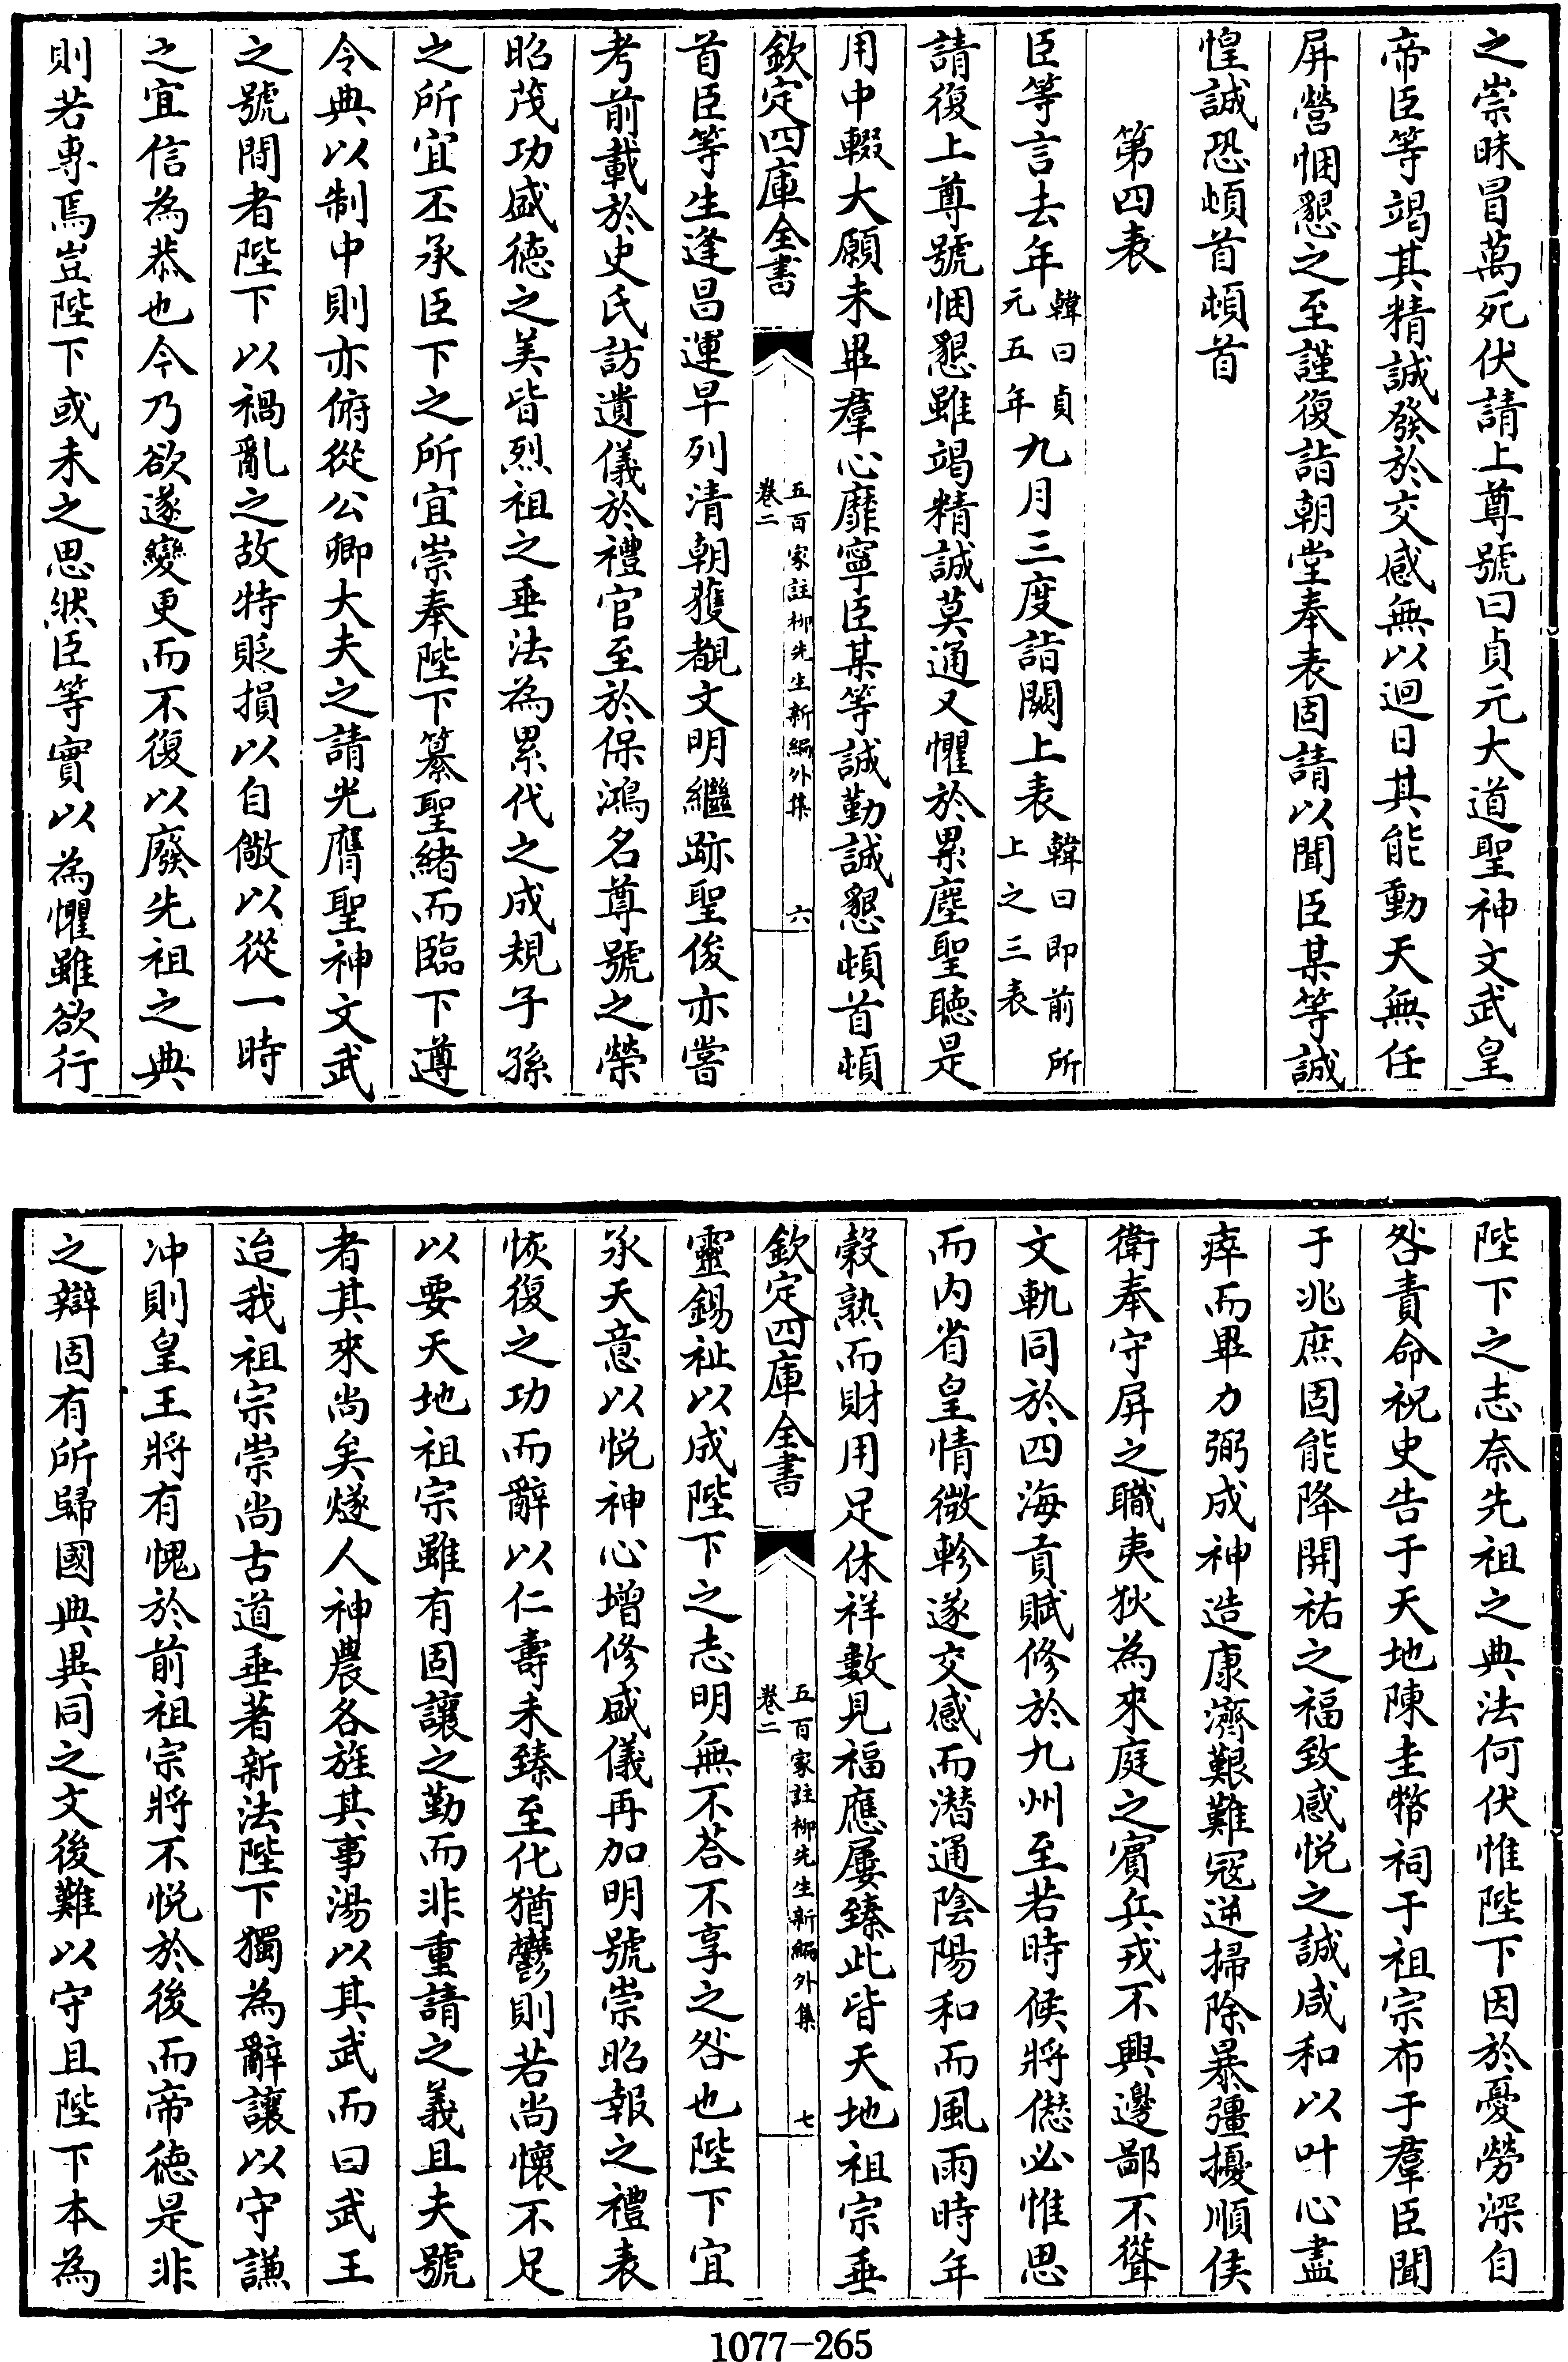 之崇昧冒萬死伏請上尊號曰貞元大道聖神文武皇
帝臣等竭其精誠發於交感無以迴日其能動天無任
屏營悃懇之至謹復詣朝堂奉表固請以聞臣某等誠
惶誠恐頓首頓首
第四表
臣等言去年韓曰貞元五年九月三度詣闕上表韓曰即前所上之三表
請復上尊號悃懇雖竭精誠莫通又懼於累塵聖聽是
用中輟大願未畢羣心靡寧臣某等誠勤誠懇頓首頓
欽定四庫全書
五百家註柳先生新編外集
卷二
六
首臣等生逢昌運早列清朝獲覩文明繼跡聖俊亦嘗
考前載於史氏訪遺儀於禮官至於保鴻名尊號之榮
昭茂功盛德之美皆烈祖之垂法為累代之成規子孫
之所宜丕承臣下之所宜崇奉陛下纂聖緒而臨下遵
令典以制中則亦俯從公卿大夫之請光膺聖神文武
之號間者陛下以禍亂之故特貶損以自儆以從一時
之宜信為恭也今乃欲遂變更而不復以廢先祖之典
則若專焉豈陛下或未之思然臣等實以為懼雖欲行
陛下之志奈先祖之典法何伏惟陛下因於憂勞深自
咎責命祝史告于天地陳圭幣祠于祖宗布于羣臣聞
于兆庶固能降開祐之福致感悦之誠咸和以叶心盡
瘁而畢力弼成神造康濟艱難寇逆掃除暴彊擾順侯
衛奉守屏之職夷狄為來庭之賓兵戎不興邊鄙不聳
文軌同於四海貢賦修於九州至若時候將僽必惟思
而内省皇情微軫遂交感而潜通陰陽和而風雨時年
穀熟而財用足休祥數見福應屢臻此皆天地祖宗垂
欽定四庫全書
五百家註柳先生新編外集
卷二
七
靈錫祉以成陛下之志明無不荅不享之咎也陛下宜
承天意以悦神心增修盛儀再加明號崇昭報之禮表
恢復之功而辭以仁壽未臻至化猶鬱則若尚懷不足
以要天地祖宗雖有固讓之勤而非重請之義且夫號
者其來尚矣燧人神農各旌其事湯以其武而曰武王
迨我祖宗崇尚古道垂著新法陛下獨為辭讓以守謙
冲則皇王將有愧於前祖宗將不悦於後而帝德是非
之辯固有所歸國典異同之文後難以守且陛下本為
1077-265